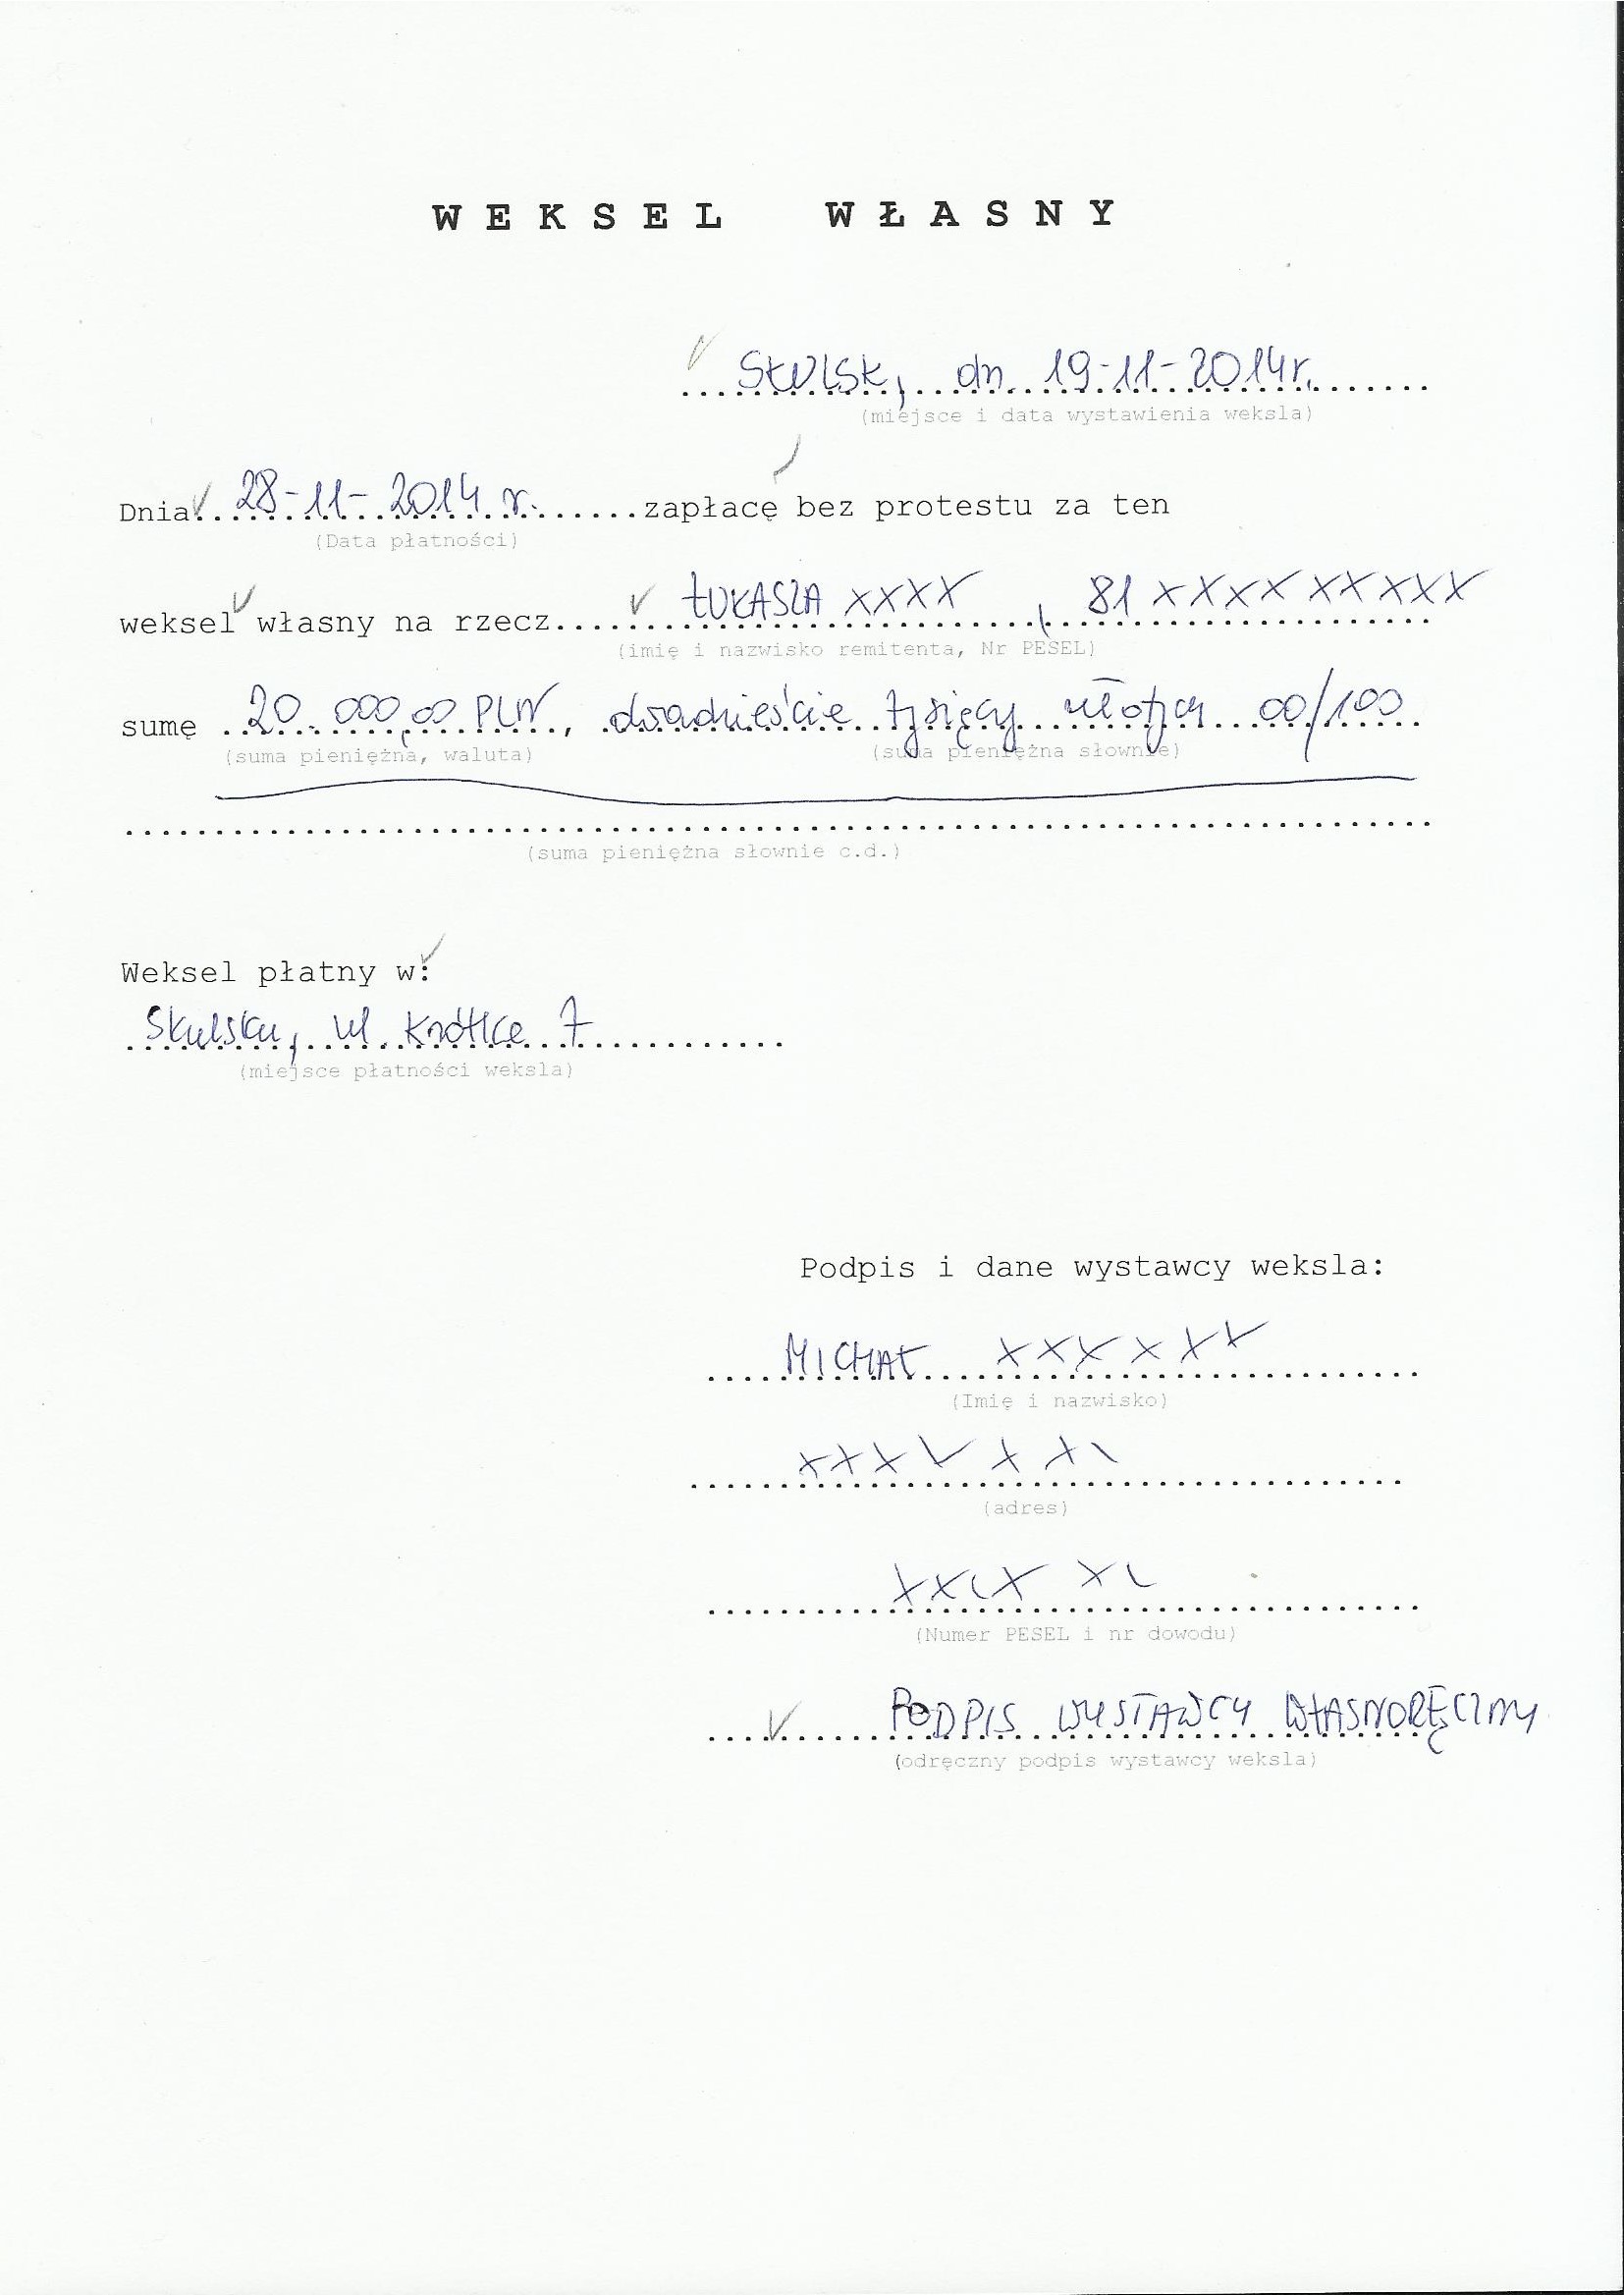 WEKSEL WŁASNY
Skulsk, dn. 19-11-2014r.
(miejsce i data wystawienia weksla)
Dnia 28-11-2014 r. zapłacę bez protestu za ten
(Data płatności)
weksel własny na rzecz ŁUKASZA XXXX, 81 XXXXXXXXX
(imię i nazwisko remitenta, Nr PESEL)
sumę 20.000,00 PLN, dwadzieścia tysięcy złotych 00/100
(suma pieniężna, waluta) (suma pieniężna słownie)
(suma pieniężna słownie c.d.)
Weksel płatny w:
Skulsku, ul. Krótka 7
(miejsce płatności weksla)
Podpis i dane wystawcy weksla:
MICHAŁ XXXXXX
(Imię i nazwisko)
(adres)
(Numer PESEL i nr dowodu)
PODPIS WYSTAWCY WŁASNORĘCZNY
(odręczny podpis wystawcy weksla)